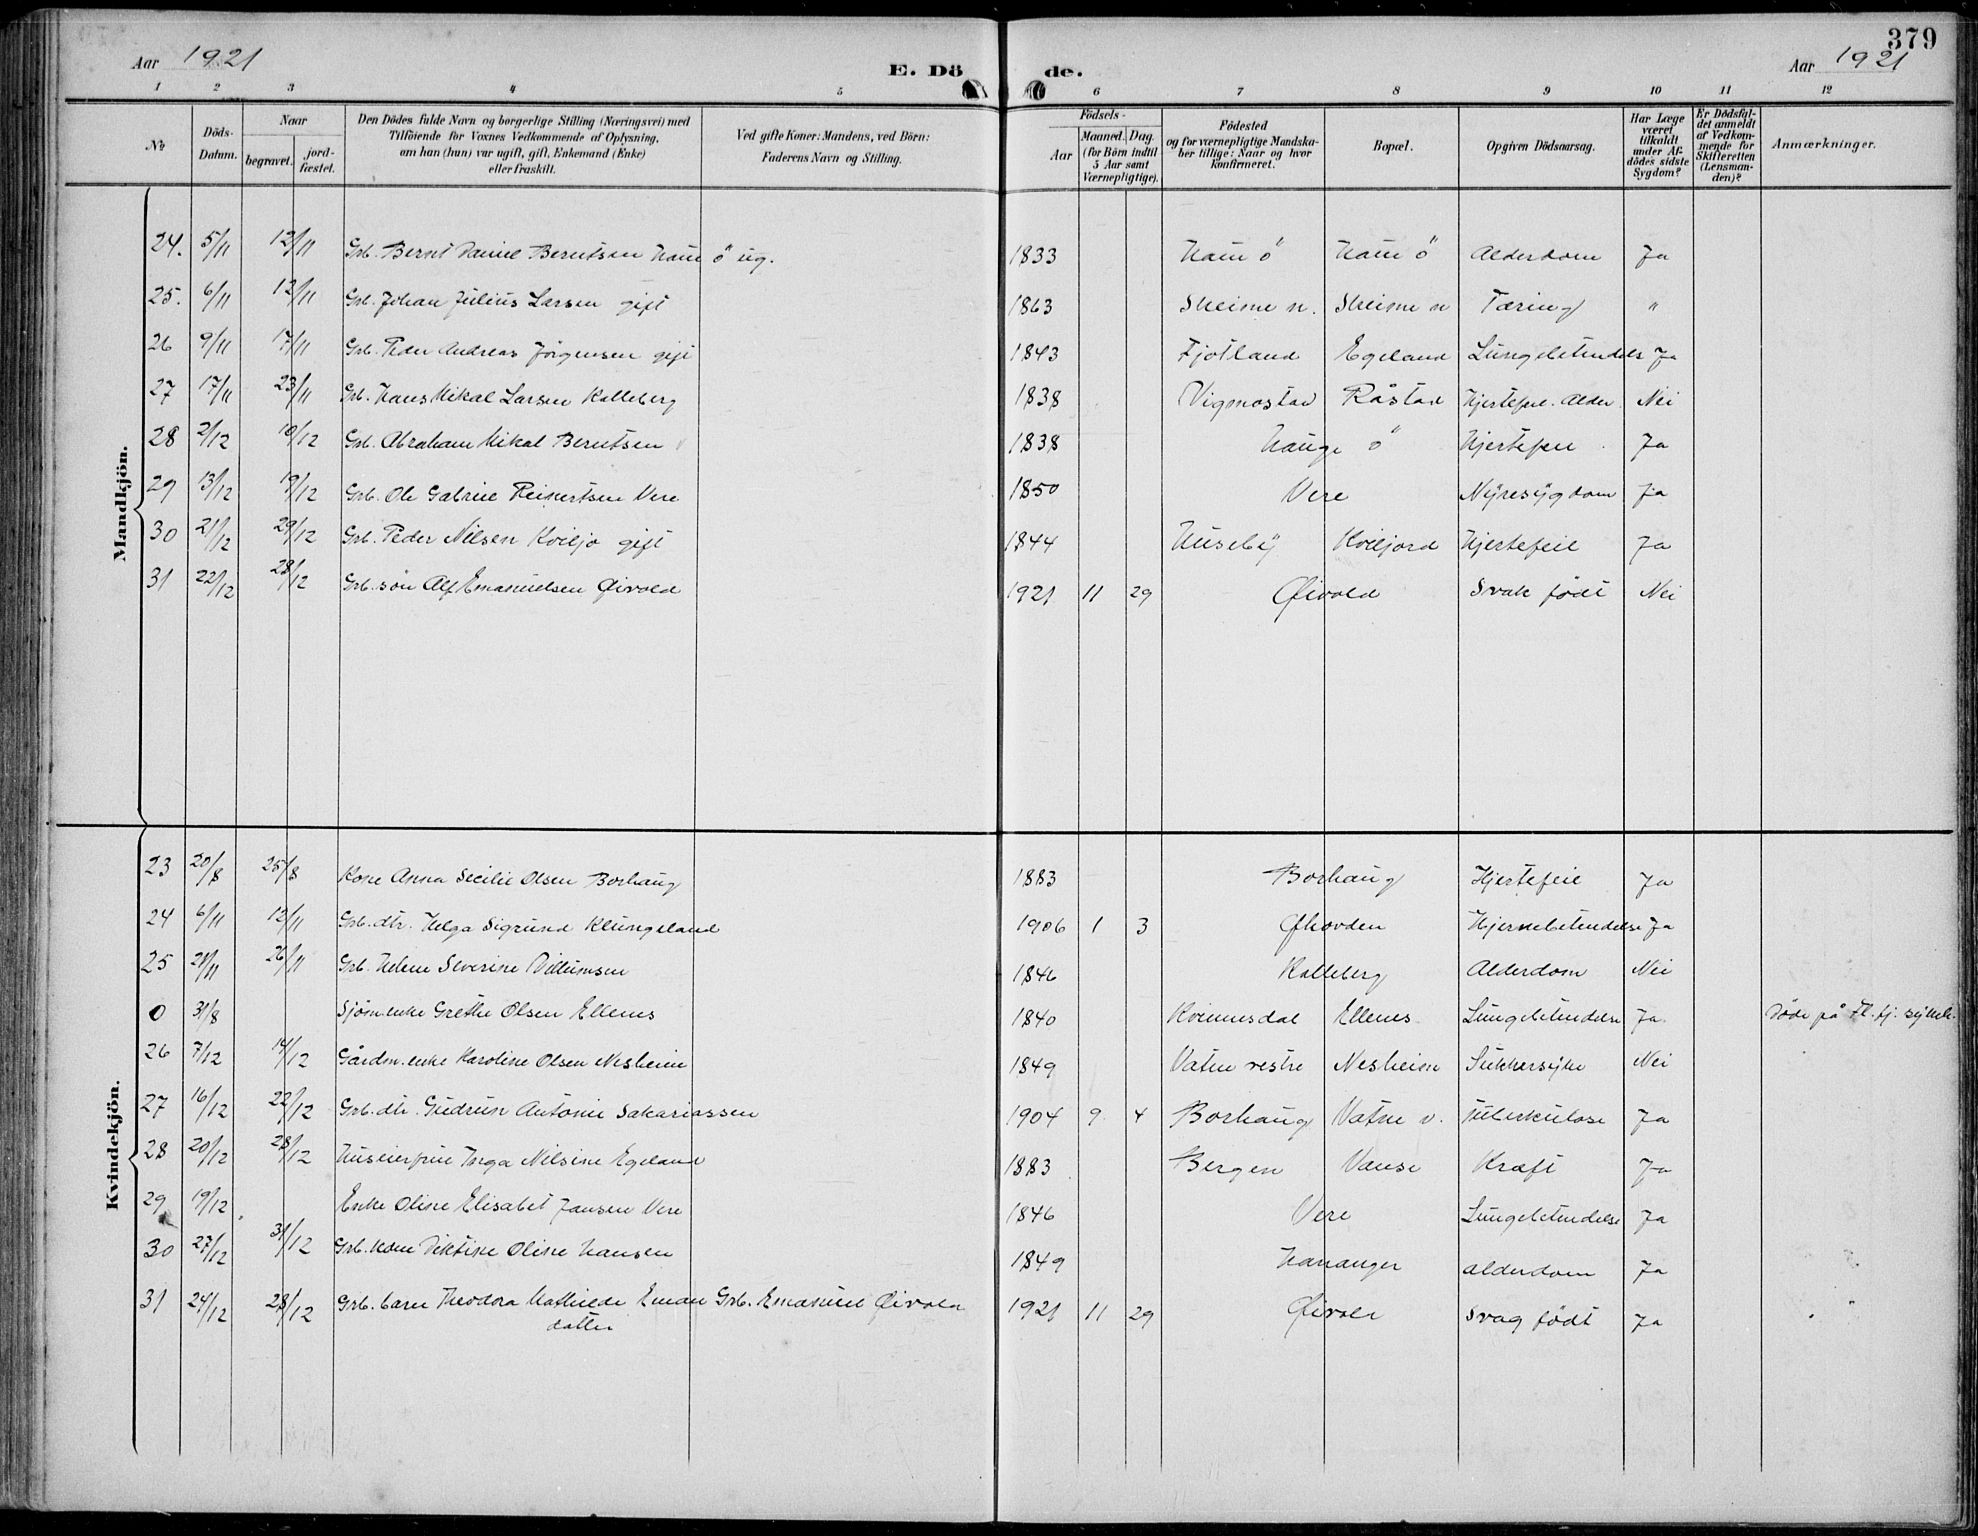 379
Aar 1921 E. Dö de. Aar 1921
1 2 3 4 5 6 7 8 9 10 11 12
№
Döds-Datum.
Naar
begravet. jordfæstet.
Den Dödes fulde Navn og borgerlige Stilling (Næringsvei) med
Tilföiende for Voxnes Vedkommende af Oplysning,
om han (hun) var ugift, gift, Enkemand (Enke)
eller fraskilt.
Ved gifte Koner: Mandens, ved Börn:
Faderens Navn og Stilling.
Födsels-
Aar Maaned. Dag.
(for Börn indtil
5 Aar samt
Værnepligtige).
Födested
og for værnepligtige Mandska-
ber tillige: Naar og hvor
konfirmeret.
Bopæl.
Opgiven Dödsaarsag.
Har Læge
været
tilkaldt
under Af-
dödes sidste
Sygdom?
Er Dödsfal-
det anmeldt
af Vedkom-
mende for
Skifteretten
(Lensman-
den)?
Anmærkninger.
Mandkjön.
24. 5/11 12/11 Grb. Bernt Daniel Berntsen Haun ö ug. 1833 Haun ö Haun ö Alderdom Ja
25. 6/11 12/11 Grb. Johan Julius Larsen gift 1863 Skeime n. Skeime n Tæring "
26 9/11 17/11 Grb. Peder Andreas Jörgensen gift 1843 Fjotland Egeland Lungebetendels Ja
27 17/11 23/11 Grb. Hans Mikal Larsen Kalleberg 1838 Vigmostad Råstad Hjertefeil. Alder. Nei
28 2/12 10/12 Grb. Abraham Mikal Berntsen 1838 Hauge ö Hjertefeil Ja
29 13/12 19/12 Grb. Ole Gabriel Reinertsen Vere 1850 Vere Nyresygdom Ja
30 21/12 29/12 Grb. Peder Nilsen Kviljo gift 1844 Huseby Kviljord Hjertefeil Ja
31 22/12 28/12 Grb. sön Alf Emanuelsen Øivold 1921 11 29 Øivold Svak födt Nei
Kvindekjön.
23 20/8 25/8 Kone Anna Secilie Olsen Borhaug 1883 Borhaug Hjertefeil Ja
24 6/11 12/11 Grb. dtr. Helga Sigrund Klungeland 1906 1 3 Øhovden Hjernebetendelse Ja
25 21/11 26/11 Grb. Helene Severine Villumsen 1846 Kalleberg Alderdom Nei
0 31/8 Sjöm. enke Grethe Olsen Ellenes 1840 Kvinnesdal Ellenes Lungebetendelse Ja. Döde på Fl. fj. sykeh.
26 7/12 14/12 Gårdm. enke Karoline Olsen Nesheim 1849 Vatne vestre Nesheim Sukkersyke Nei
27 16/12 22/12 Grb. dtr. Gudrun Antonie Sakariassen 1904 9 4 Borhaug Vatne v. Tuberkulose Ja
28 20/12 28/12 Huseierfrue Inga Nilsine Egeland 1883 Bergen Vanse Kræft Ja
29 19/12 Enke Oline Elisabet Jansen Vere 1846 Vere Lungebetendelse Ja
30 27/12 31/12 Grb. kone Diktine Oline Hansen 1849 Hananger alderdom Ja
31 24/12 28/12 Grb. barn Theodora Mathilde Eman datter Grb. Emanuel Øivold 1921 11 29 Øivold Svag födt Ja